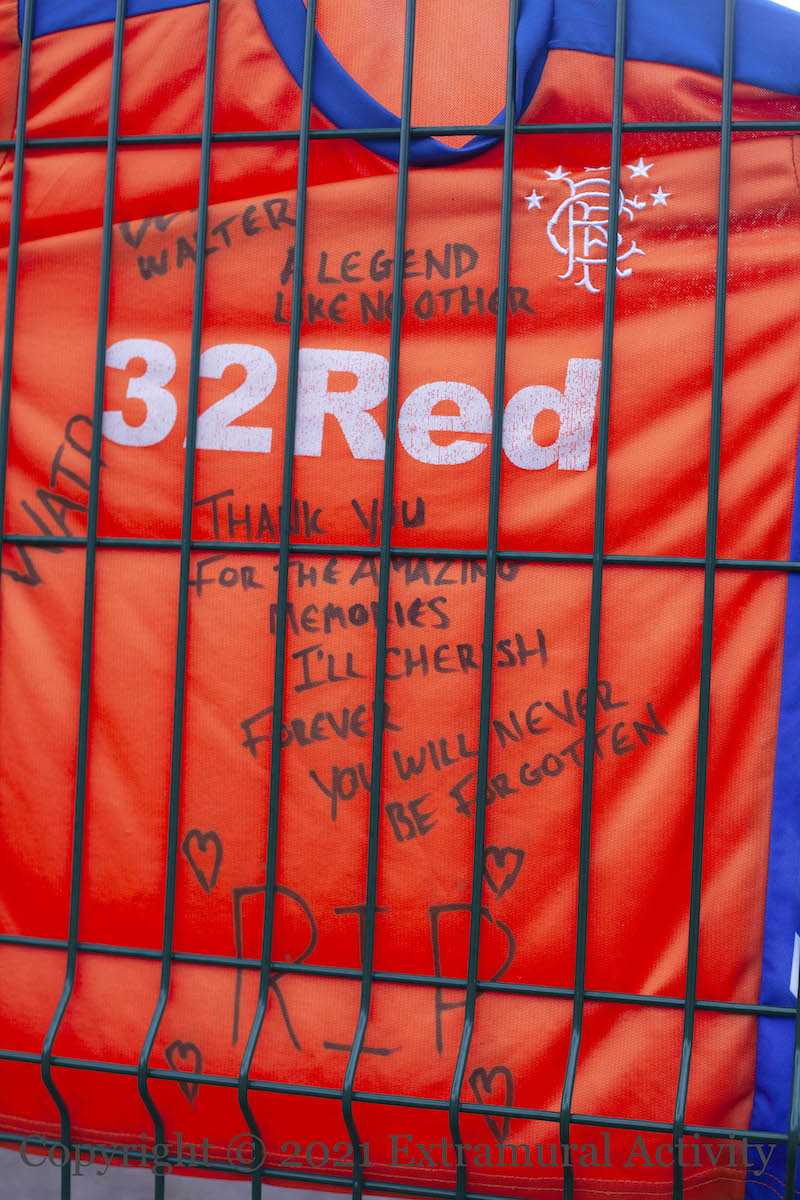 WALTER
A LEGEND
LIKE NO OTHER
32Red
WATP
THANK YOU
FOR THE AMAZING
MEMORIES
I'LL CHERISH
FOREVER
YOU WILL NEVER
BE FORGOTTEN
RIP
Copyright © 2021 Extramural Activity